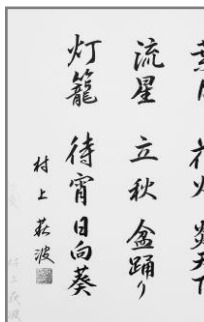 花火 炎天下
流星 立秋 盆踊り
灯籠 待宵 日向葵
村上萩波